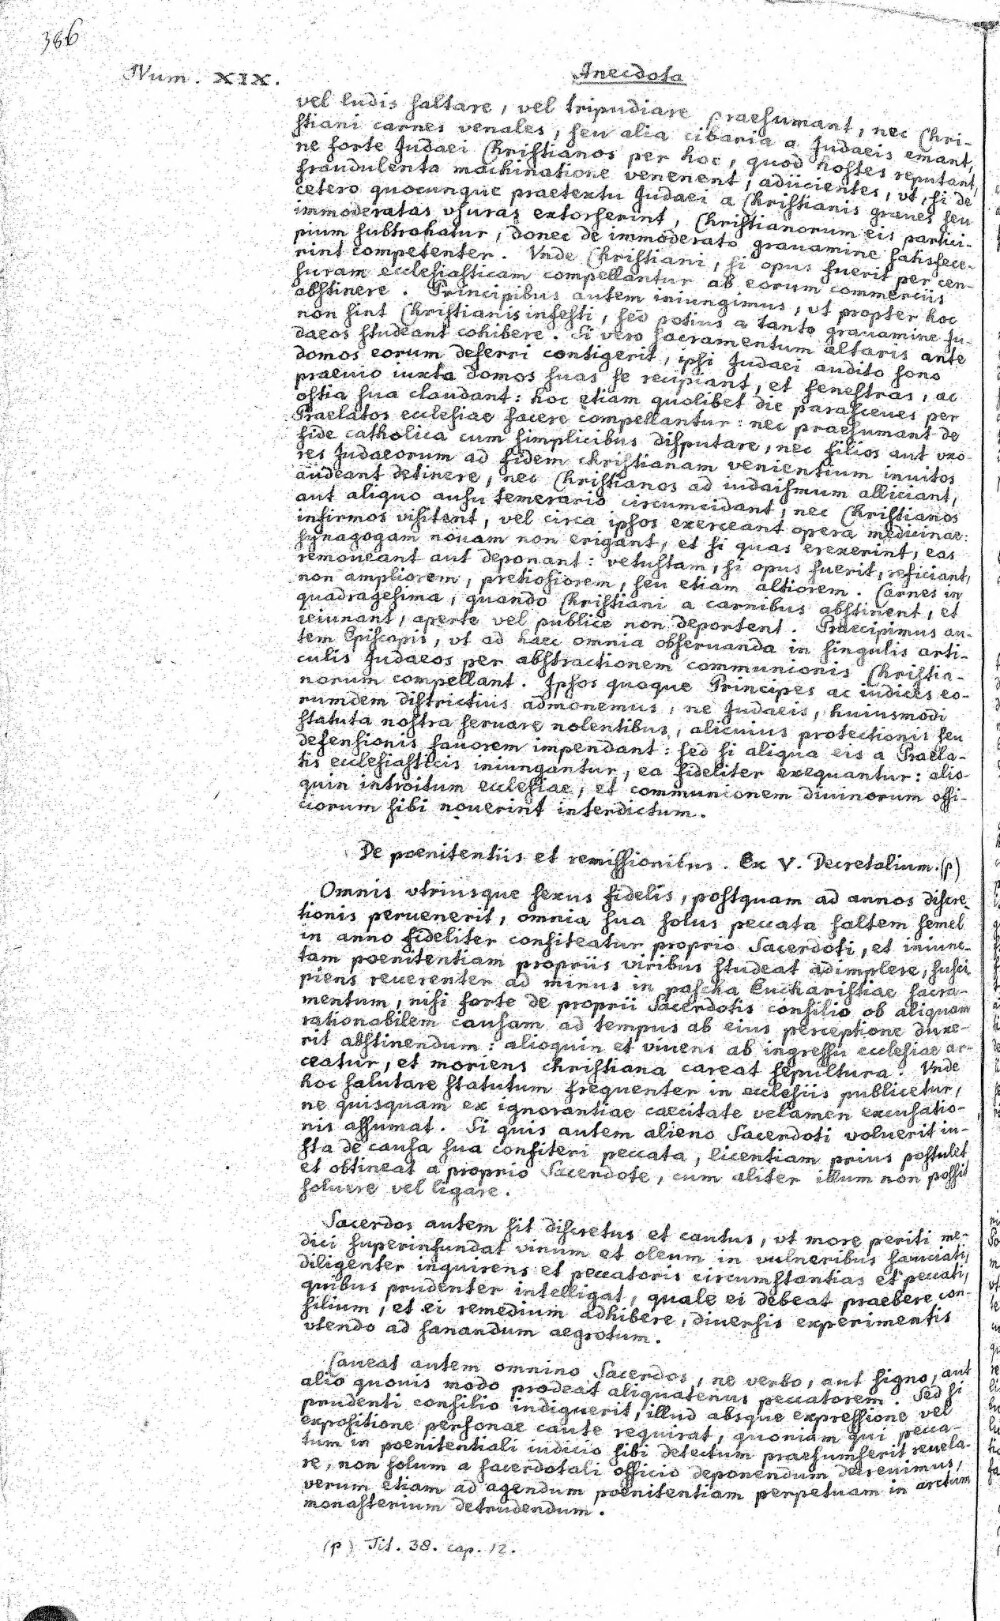 386
Num. XIX.
Anecdota
vel ludis saltare, vel tripudiare praesumant, nec Chri-
stiani carnes venales, seu alia cibaria a Judaeis emant,
ne forte Judaei Christianos per hoc, quod hostes reputant,
fraudulenta machinatione venenent, adiicientes, vt, si de
cetero quocunque praetextu Judaei a Christianis graues seu
immoderatas vsuras extorserint, Christianorum eis partici-
pium subtrahatur, donec de immoderato grauamine satisfece-
rint competenter. Vnde Christiani, si opus fuerit per cen-
suram ecclesiasticam compellantur ab eorum commerciis
abstinere. Principibus autem iniungimus, vt propter hoc
non sint Christianis infesti, sed potius a tanto grauamine Ju-
daeos studeant cohibere. Si vero sacramentum altaris ante
domos eorum deferri contigerit, ipsi Judaei audito sono
praeuio iuxta domos suas se recipiant, et fenestras, ac
ostia sua claudant: hoc etiam quolibet die parasceues per
Praelatos ecclesiae facere compellantur: nec praesumant de
fide catholica cum simplicibus disputare, nec filios aut vxo-
res Judaeorum ad fidem christianam venientium inuitos
audeant detinere, nec Christianos ad iudaismum alliciant,
aut aliquo ausu temerario circumcidant, nec Christianos
infirmos visitent, vel circa ipsos exerceant opera medicinae:
synagogam nouam non erigant, et si quas erexerint, eas
remoueant aut deponant: vetustam, si opus fuerit, reficiant,
non ampliorem, pretiosiorem, seu etiam altiorem. Carnes in
quadragesima, quando Christiani a carnibus abstinent, et
ieiunant, aperte vel publice non deportent. Praecipimus au-
tem Episcopis, vt ad haec omnia obseruanda in singulis arti-
culis Judaeos per abstractionem communionis Christia-
norum compellant. Ipsos quoque Principes ac iudices eo-
rumdem districtius admonemus, ne Judaeis, huiusmodi
statuta nostra seruare nolentibus, alicuius protectionis seu
defensionis fauorem impendant: sed si aliqua eis a Praela-
tis ecclesiasticis iniungantur, ea fideliter exequantur: alio-
quin introitum ecclesiae, et communionem diuinorum offi-
ciorum sibi nouerint interdictum.
De poenitentiis et remissionibus. Ex V. Decretalium. (p)
Omnis vtriusque sexus fidelis, postquam ad annos discre-
tionis peruenerit, omnia sua solus peccata saltem semel
in anno fideliter confiteatur proprio Sacerdoti, et iniunc-
tam poenitentiam propriis viribus studeat adimplere, susci
piens reuerenter ad minus in pascha Eucharistiae sacra-
mentum, nisi forte de proprii Sacerdotis consilio ob aliquam
rationabilem causam ad tempus ab eius perceptione duxe-
rit abstinendum: alioquin et viuens ab ingressu ecclesiae ar-
ceatur, et moriens christiana careat sepultura. Vnde
hoc salutare statutum frequenter in ecclesiis publicetur,
ne quisquam ex ignorantiae caecitate velamen excusatio-
nis assumat. Si quis autem alieno Sacerdoti voluerit iu-
sta de causa sua confiteri peccata, licentiam prius postulet
et obtineat a proprio Sacerdote, cum aliter illum non possit
soluere vel ligare.
Sacerdos autem sit discretus et cautus, vt more periti me-
dici superinfundat vinum et oleum in vulneribus sauciati,
diligenter inquirens et peccatoris circumstantias et peccati,
quibus prudenter intelligat, quale ei debeat praebere con-
silium, et ei remedium adhibere, diuersis experimentis
vtendo ad sanandum aegrotum.
Caueat autem omnino Sacerdos, ne verbo, aut signo, aut
alio quouis modo prodeat aliquatenus peccatorem. Sed si
prudenti consilio indiguerit, illud absque expressione vel
expositione personae caute requirat, quoniam qui pecca-
tum in poenitentiali iudicio sibi detectum praesumserit reuela-
re, non solum a sacerdotali officio deponendum decreuimus,
verum etiam ad agendum poenitentiam perpetuam in arctum
monasterium detrudendum.
(p) Tit. 38. cap. 12.